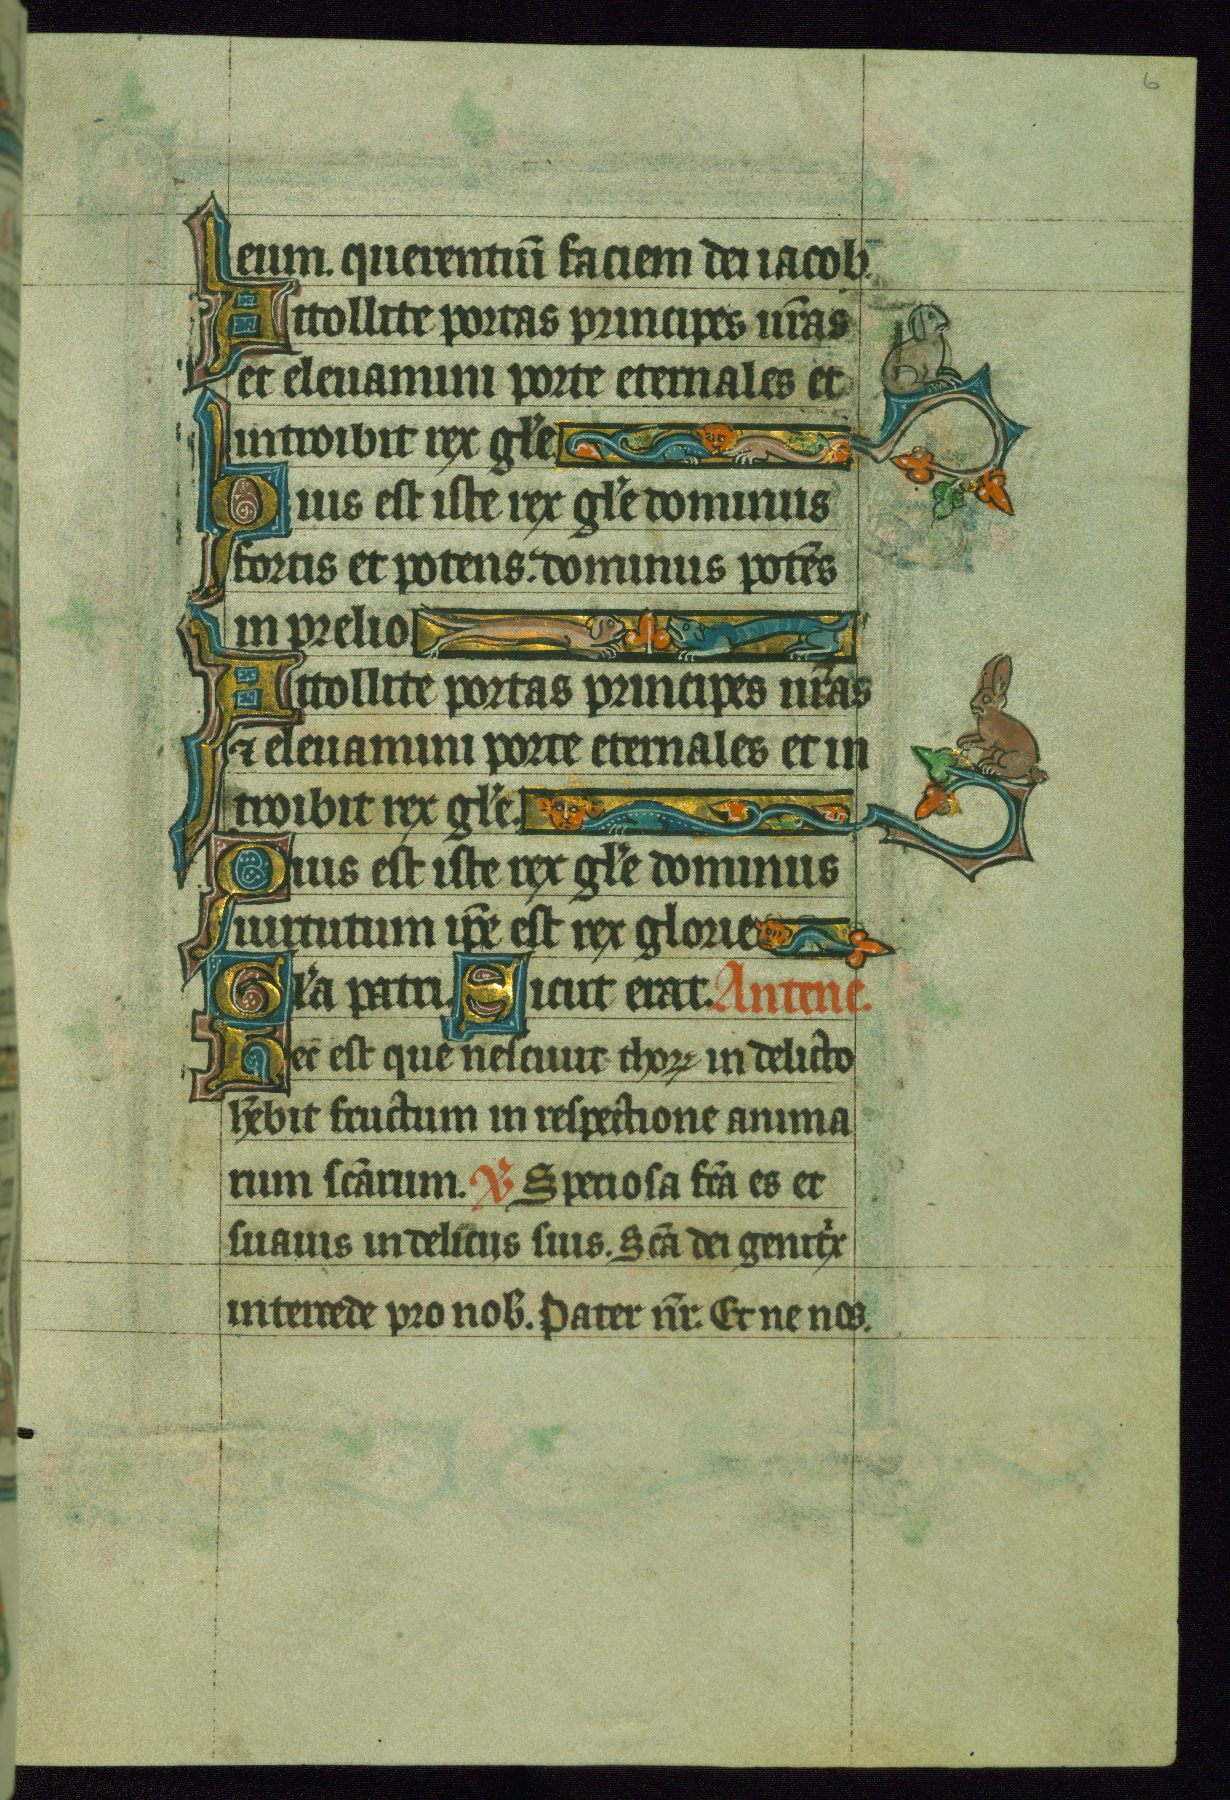 6
eum. querentiũ faciem dei iacob.
Attollite portas principes ur̃as
et eleuamini porte eternales et
introibit rex gl'e
Quis est iste rex gl'e dominus
fortis et potens. dominus potẽs
in prelio
Attollite portas principes ur̃as
⁊ eleuamini porte eternales et in
troibit rex gl'e.
Quis est iste rex gl'e dominus
uirtutum ip̃e est rex glorie
Gl'a patri. Sicut erat. Antene.
Hec̃ est que nesciuit thoꝝ in delicto
h̃ebit fructum in respectione anima
rum sc̃arum. ℣ Speciosa fc̃a es et
suauis in delicijs tuis. Sc̃a dei genitr̃x
intercede pro nob̃. Pater nr̃. Et ne nos.